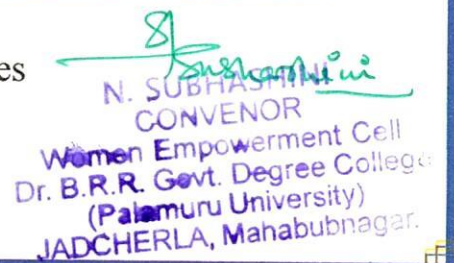 es
Subhashini
N. SUBHASHINI
CONVENOR
Women Empowerment Cell
Dr. B.R.R. Govt. Degree College
(Palamuru University)
JADCHERLA, Mahabubnagar.